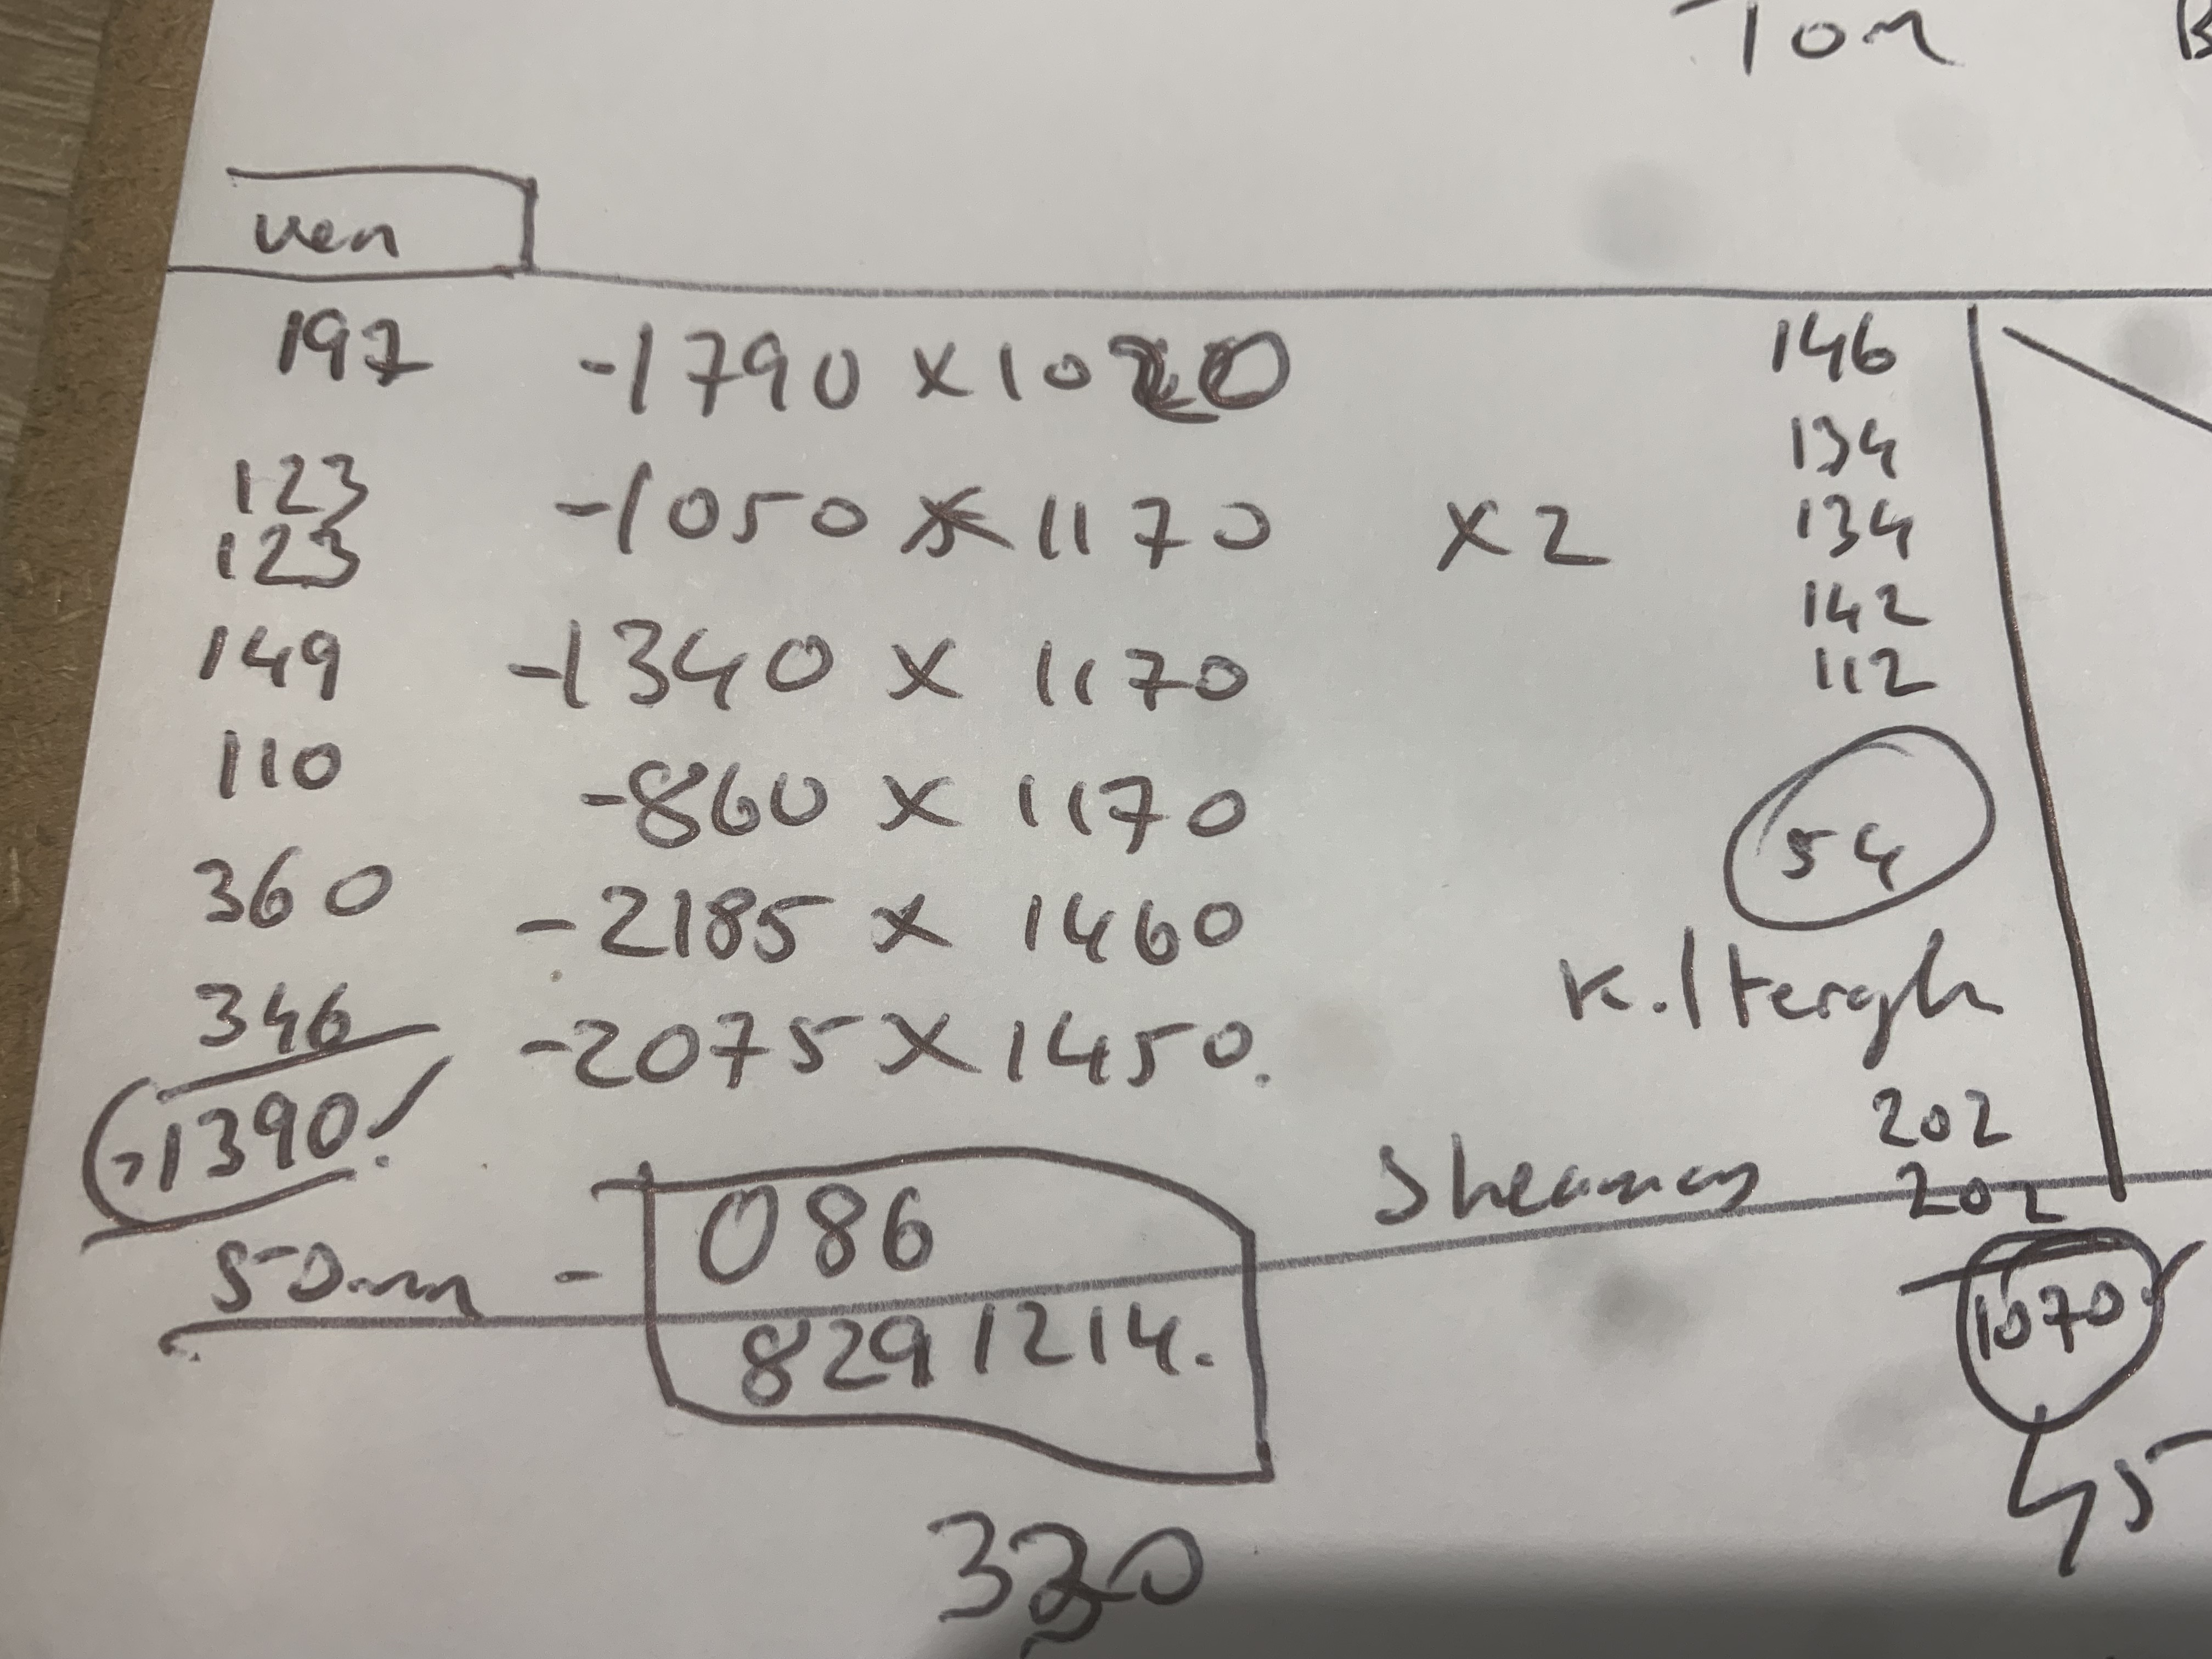 Tom B
ven
197 -1790 x 1020 146
134
123 -1050 x 1170 x2 134
123
142
149 -1340 x 1170 112
110 -860 x 1170
54
360 -2185 x 1460
K.ltergh
346 -2075 x 1450.
1390 202
Sheamas 202
50mm - 086
8291214. 1070
45
320